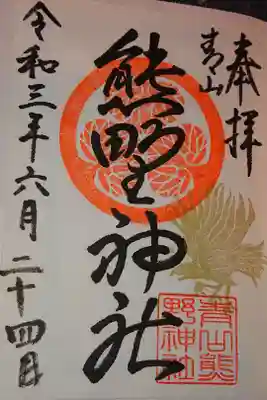 奉拝
青山
熊野神社
令和三年六月二十四日
青山熊
野神社